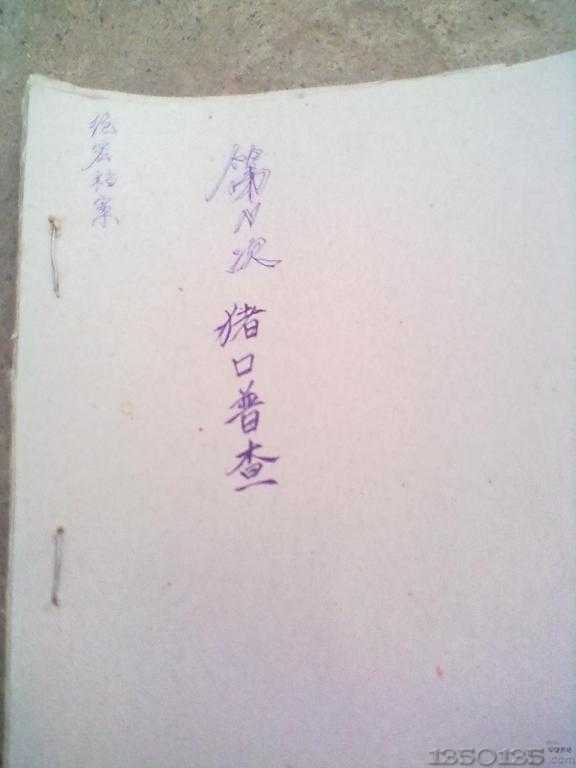 绝密档案
第N次
猪口普查
1350135
.com